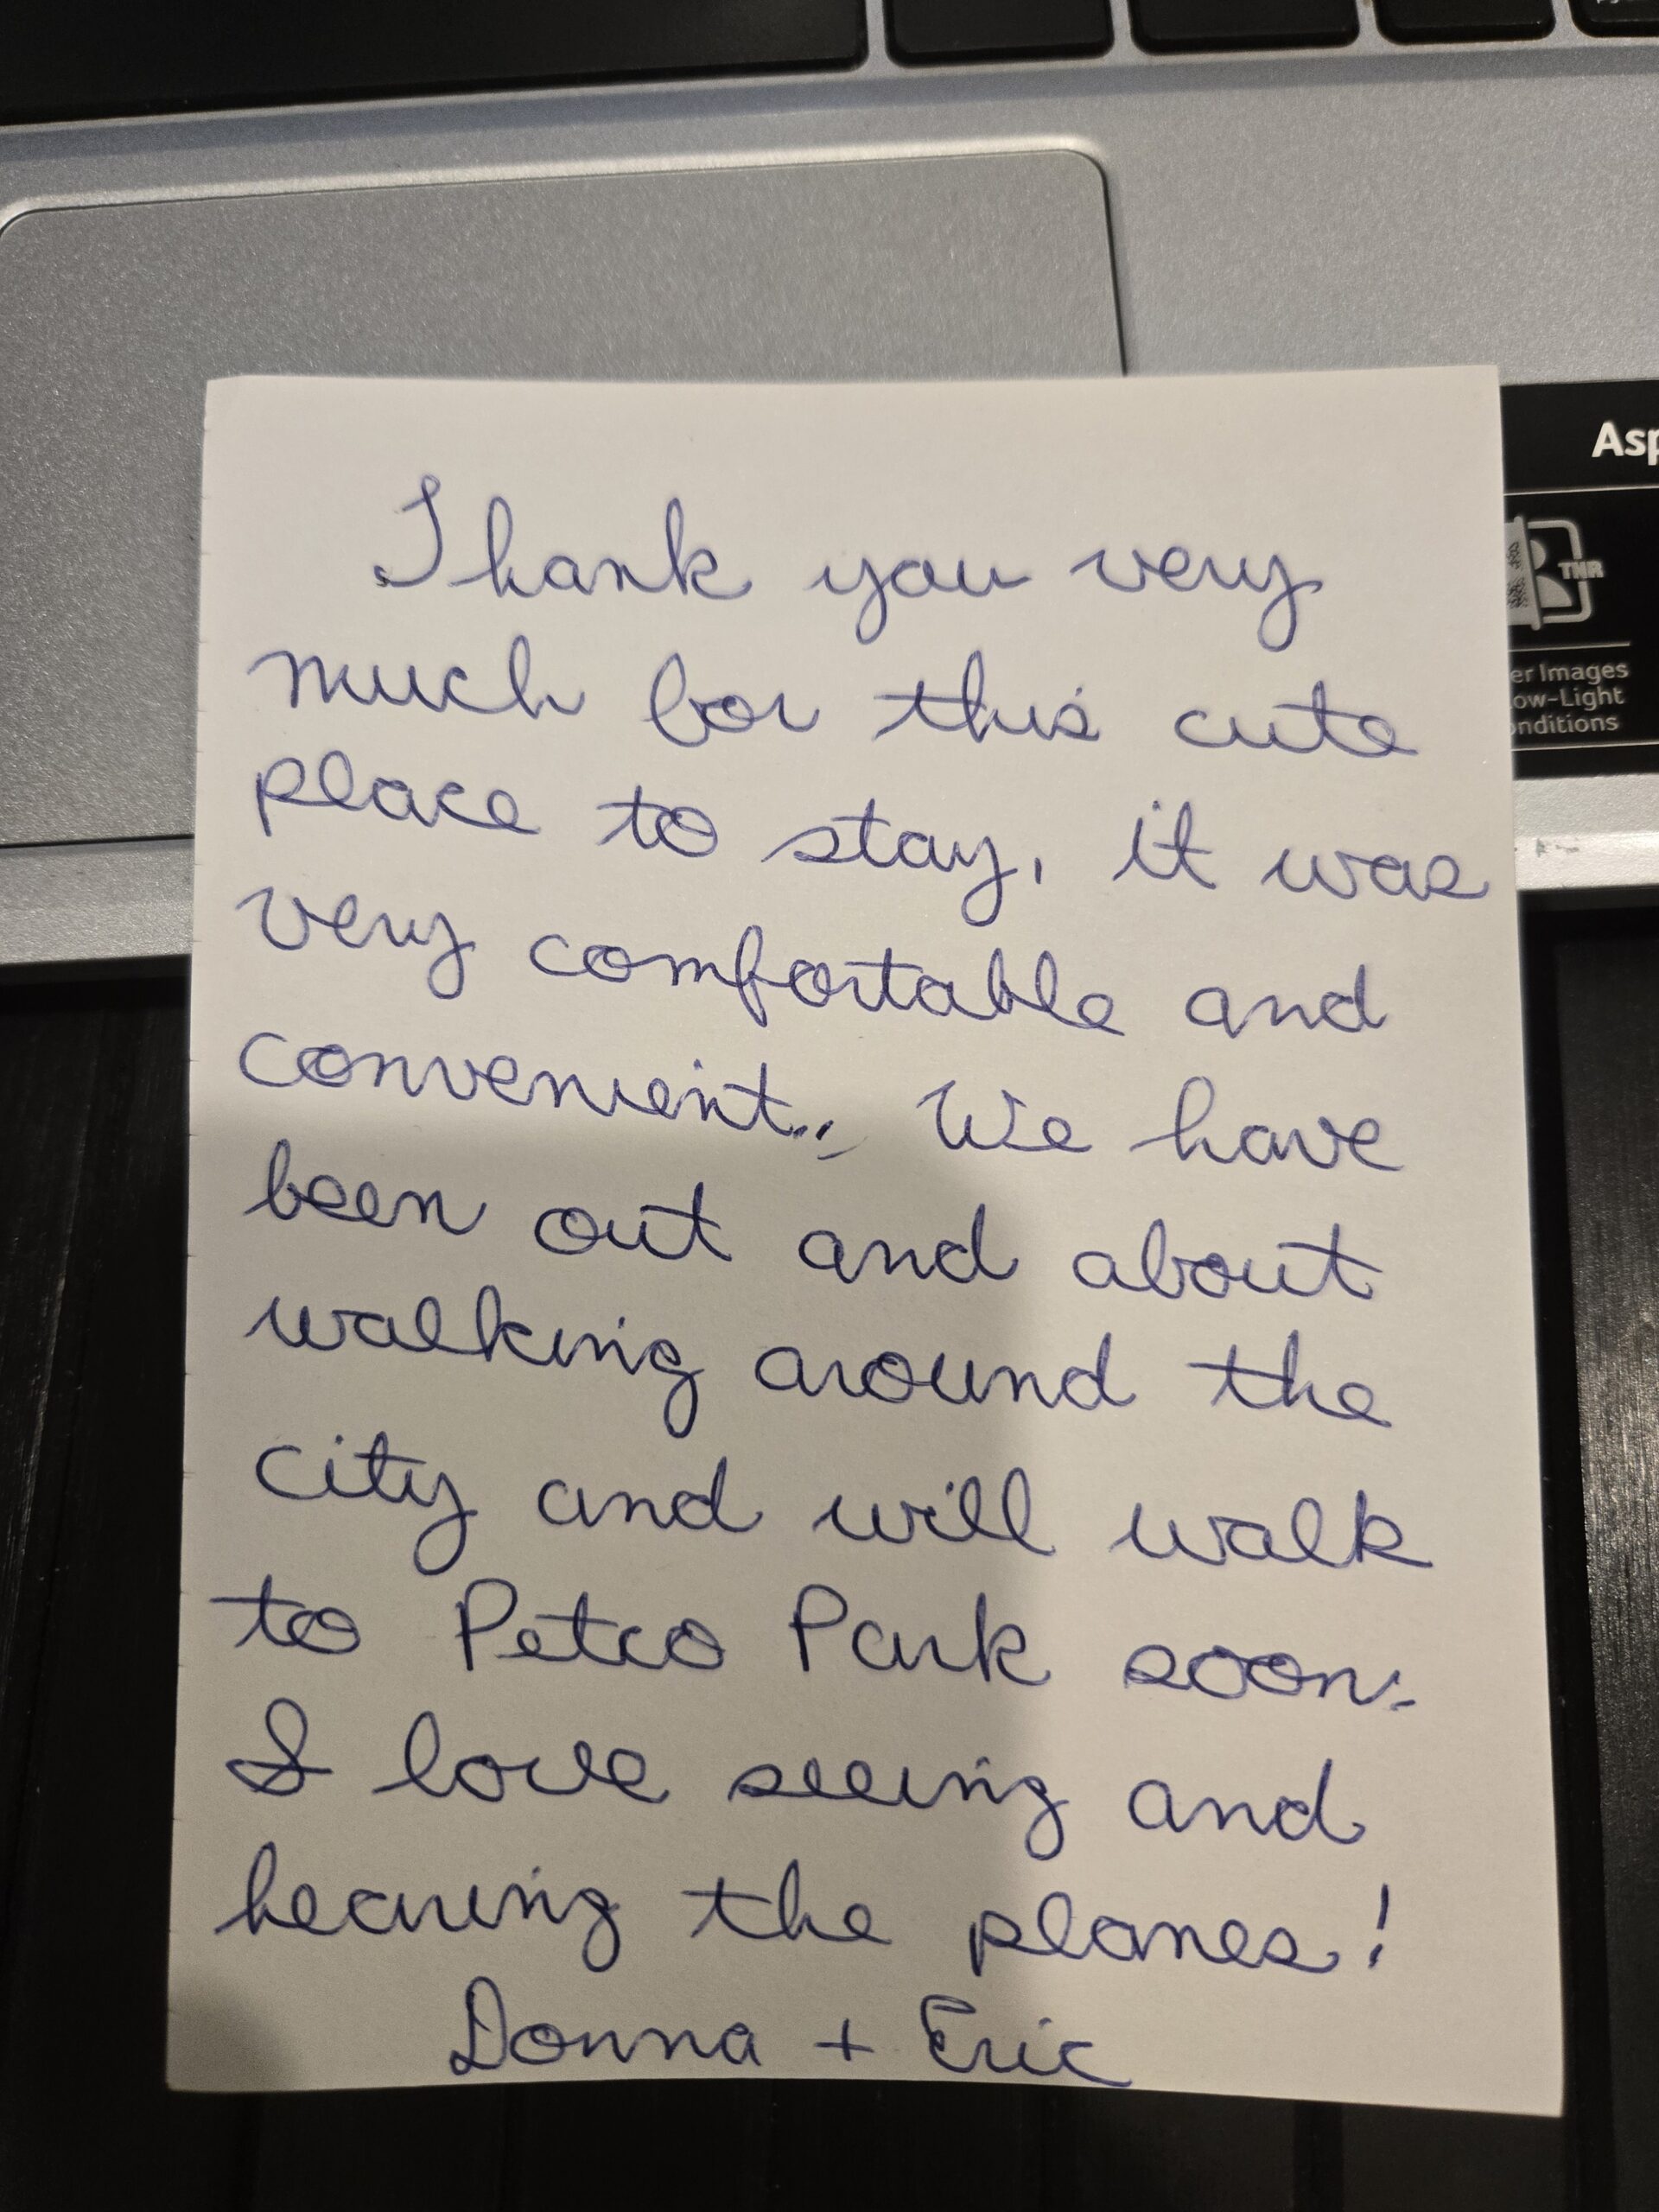 Asp
TNR
er Images
ow-Light
onditions
Thank you very
much for this cute
place to stay, it was
very comfortable and
convenient.. We have
been out and about
walking around the
city and will walk
to Petco Park soon.
I love seeing and
hearing the planes!
Donna + Eric